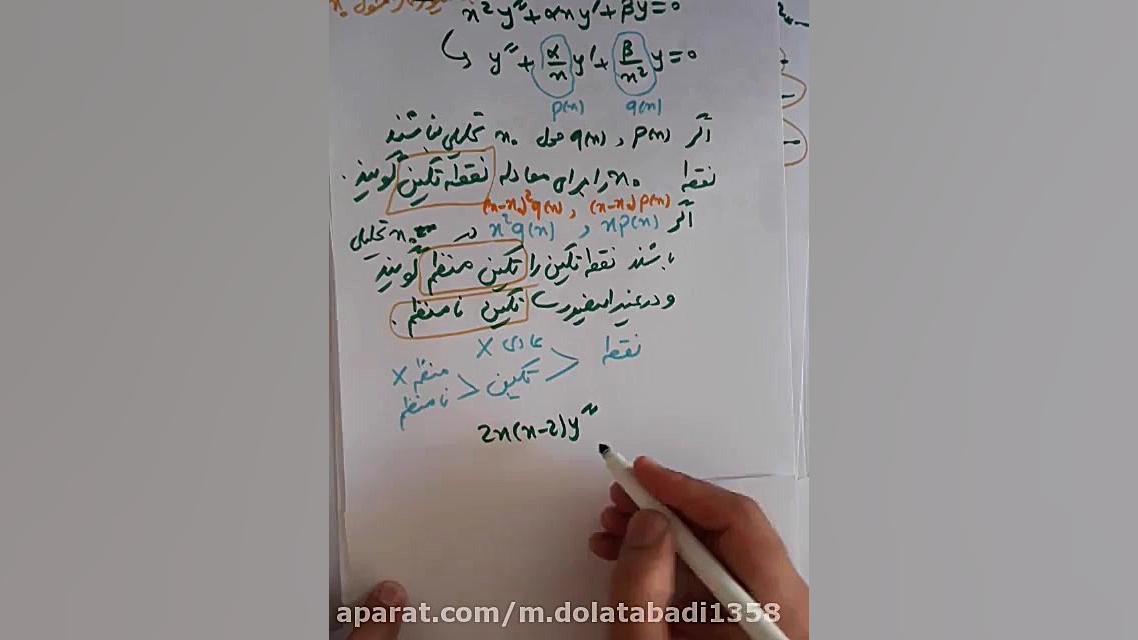 x²y″+αxy′+βy=0
y″ + α/x y′ + β/x² y = 0
p(x) q(x)
اگر p(x) و q(x) حول x₀ تحلیلی نباشند
نقطه x₀ را برای معادله نقطه تکین گویند.
(x-x₀)²q(x) , (x-x₀)p(x)
اگر xp(x) و x²q(x) در x₀ تحلیلی
باشند نقطه تکین را تکین منظم گویند
و در غیر اینصورت تکین نامنظم.
نقطه > عادی X
تکین > منظم X
نامنظم
2x(x-2)y″
aparat.com/m.dolatabadi1358